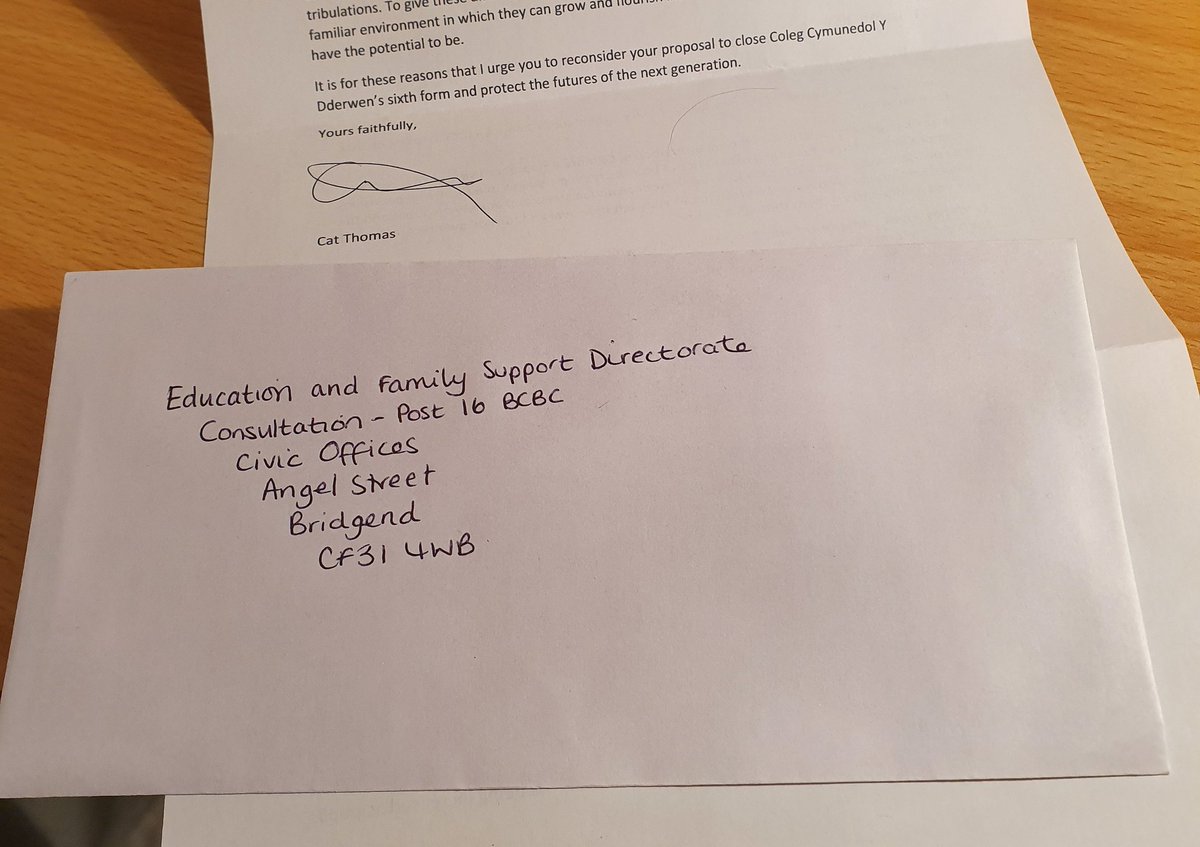 tribulations. To give these
familiar environment in which they can grow and flourish
have the potential to be.
It is for these reasons that I urge you to reconsider your proposal to close Coleg Cymunedol Y
Dderwen's sixth form and protect the futures of the next generation.
Yours faithfully,
Cat Thomas
Education and Family Support Directorate
Consultation - Post 16 BCBC
Civic Offices
Angel Street
Bridgend
CF31 4WB